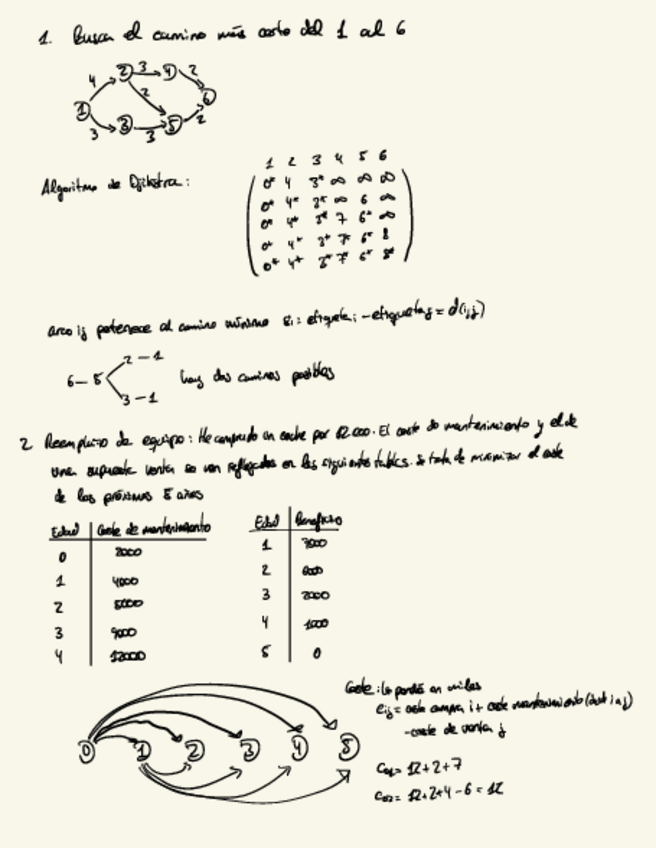 1. Buscar el camino más corto del 1 al 6
4 2 3 4 2
1 2 6
3 3 3 5 2
1 2 3 4 5 6
Algoritmo de Djikstra:
0* 4 3* ∞ ∞ ∞
0* 4* 3* ∞ 6 ∞
0* 4* 3* 7 6* ∞
0* 4* 3* 7* 6* 8
0* 4* 3* 7* 6* 8*
arco ij pertenece al camino mínimo si: etiqueta i - etiqueta j = d(i,j)
2 - 1
6 - 5 hay dos caminos posibles
3 - 1
2 Reemplazo de equipo: He comprado un coche por 12000. El coste de mantenimiento y el de
una supuesta venta se ven reflejados en las siguientes tablas. Se trata de minimizar el coste
de los próximos 5 años
Edad Coste de mantenimiento
0 2000
1 4000
2 5000
3 9000
4 12000
Edad Beneficio
1 7000
2 6000
3 2000
4 1000
5 0
0 1 2 3 4 5
Coste: lo pondré en miles
cij = coste compra i + coste mantenimiento (de i a j)
- coste de venta j
C01 = 12+2+7
C02 = 12+2+4-6 = 12